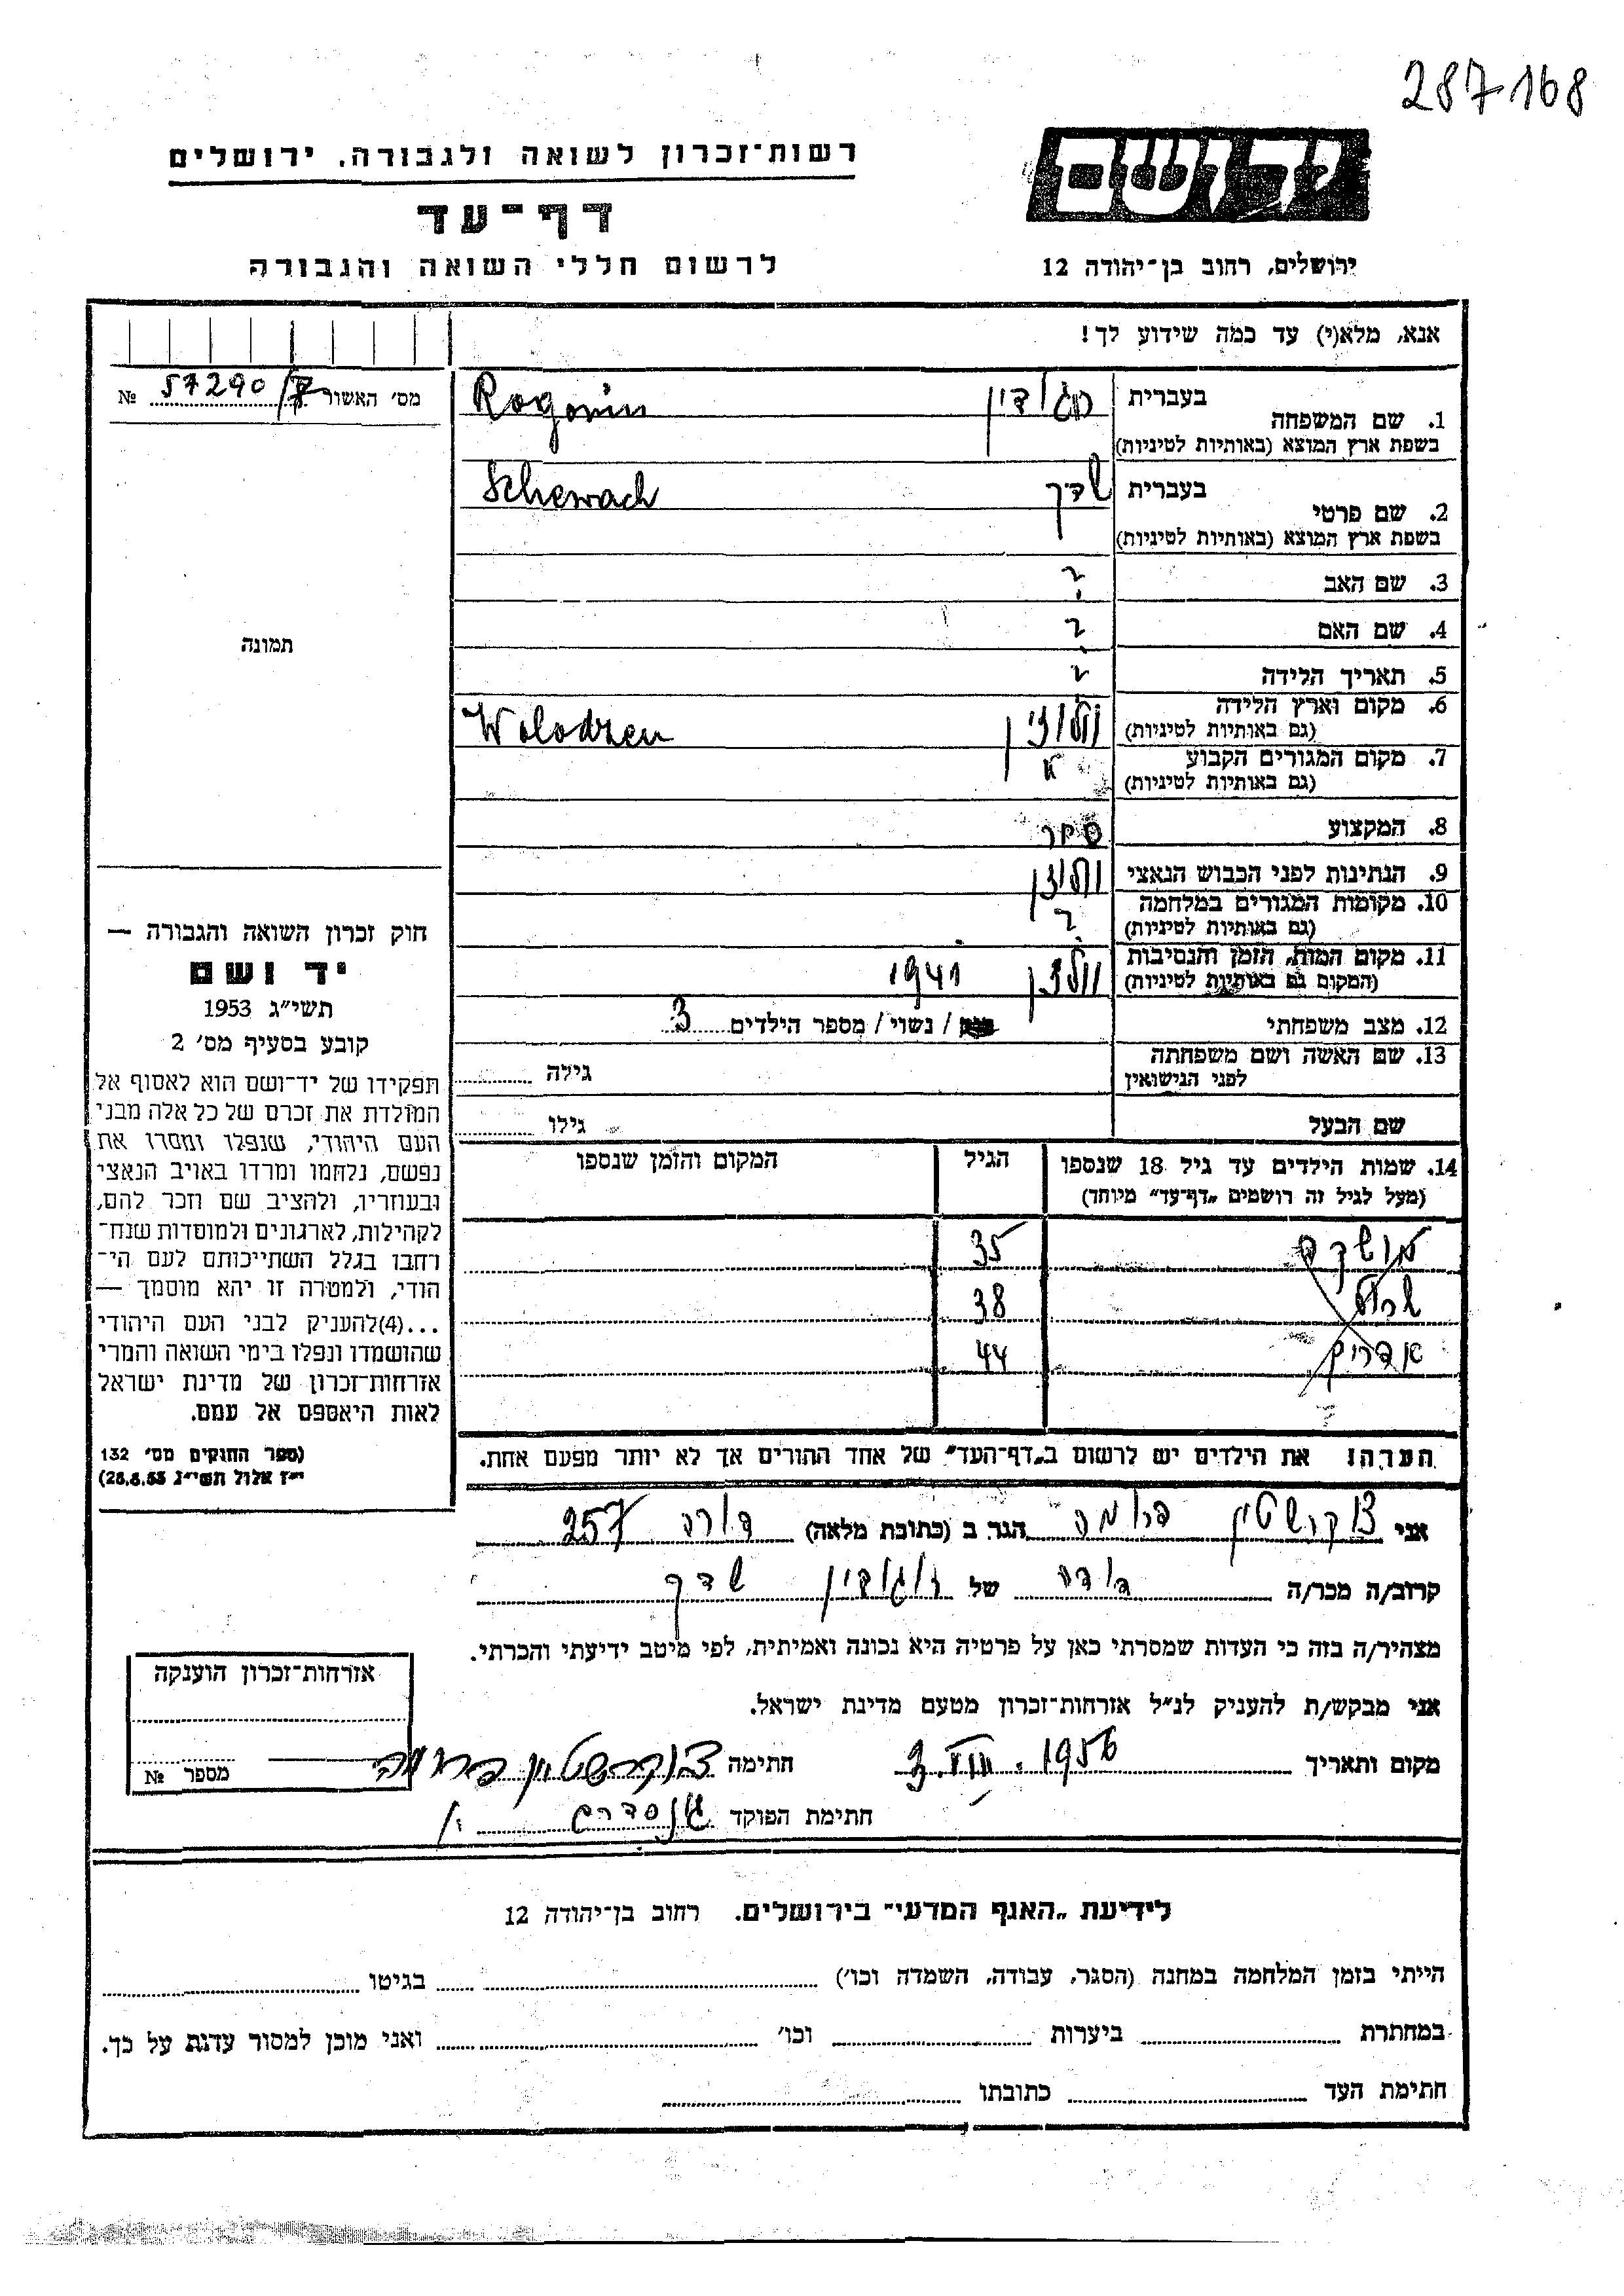 287168
יד ושם
רשות־זכרון לשואה ולגבורה, ירושלים
דף־עד
לרשום חללי השואה והגבורה
ירושלים, רחוב בן־יהודה 12
אנא, מלא(י) עד כמה שידוע לך!
מס׳ האשור 57290/ №
1. שם המשפחה בעברית
בשפת ארץ המוצא (באותיות לטיניות)
Rogovin
2. שם פרטי בעברית
בשפת ארץ המוצא (באותיות לטיניות)
Schewach
3. שם האב ?
4. שם האם ?
5. תאריך הלידה ?
6. מקום וארץ הלידה
(גם באותיות לטיניות)
וולוז׳ין Wolodzen
7. מקום המגורים הקבוע "
(גם באותיות לטיניות)
8. המקצוע
9. הנתינות לפני הכבוש הנאצי
10. מקומות המגורים במלחמה ?
(גם באותיות לטיניות)
11. מקום המות, הזמן והנסיבות 1941
(המקום גם באותיות לטיניות)
12. מצב משפחתי / נשוי / מספר הילדים 3
13. שם האשה ושם משפחתה
לפני הנישואין
גילה
שם הבעל
גילו
14. שמות הילדים עד גיל 18 שנספו
(מעל לגיל זה רושמים „דף־עד״ מיוחד)
הגיל
המקום והזמן שנספו
35
38
44
הערה! את הילדים יש לרשום ב„דף־העד״ של אחד ההורים אך לא יותר מפעם אחת.
תמונה
חוק זכרון השואה והגבורה —
יד ושם
תשי״ג 1953
קובע בסעיף מס׳ 2
תפקידו של יד־ושם הוא לאסוף אל
המולדת את זכרם של כל אלה מבני
העם היהודי, שנפלו ומסרו את
נפשם, נלחמו ומרדו באויב הנאצי
ובעוזריו, ולהציב שם וזכר להם,
לקהילות, לארגונים ולמוסדות שנח־
רחבו בגלל השתייכותם לעם הי־
הודי, ולמטרה זו יהא מוסמך —
...(4)להעניק לבני העם היהודי
שהושמדו ונפלו בימי השואה והמרי
אזרחות־זכרון של מדינת ישראל
לאות היאספם אל עמם.
(ספר החוקים מס׳ 132
י״ז אלול תשי״ג 28.8.53)
אני צוקרשטיין פרומה הגר ב (כתובת מלאה) 257
קרוב/ה מכר/ה דודה של
מצהיר/ה בזה כי העדות שמסרתי כאן על פרטיה היא נכונה ואמיתית, לפי מיטב ידיעתי והכרתי.
אני מבקש/ת להעניק לנ״ל אזרחות־זכרון מטעם מדינת ישראל.
מקום ותאריך 3.VIII.1956 חתימה צוקרשטיין פרומה
חתימת הפוקד
אזרחות־זכרון הוענקה
מספר №
לידיעת „האגף המדעי״ בירושלים. רחוב בן־יהודה 12
הייתי בזמן המלחמה במחנה (הסגר, עבודה, השמדה וכו׳) בגיטו
במחתרת ביערות וכו׳ ואני מוכן למסור עדות על כך.
חתימת העד כתובתו